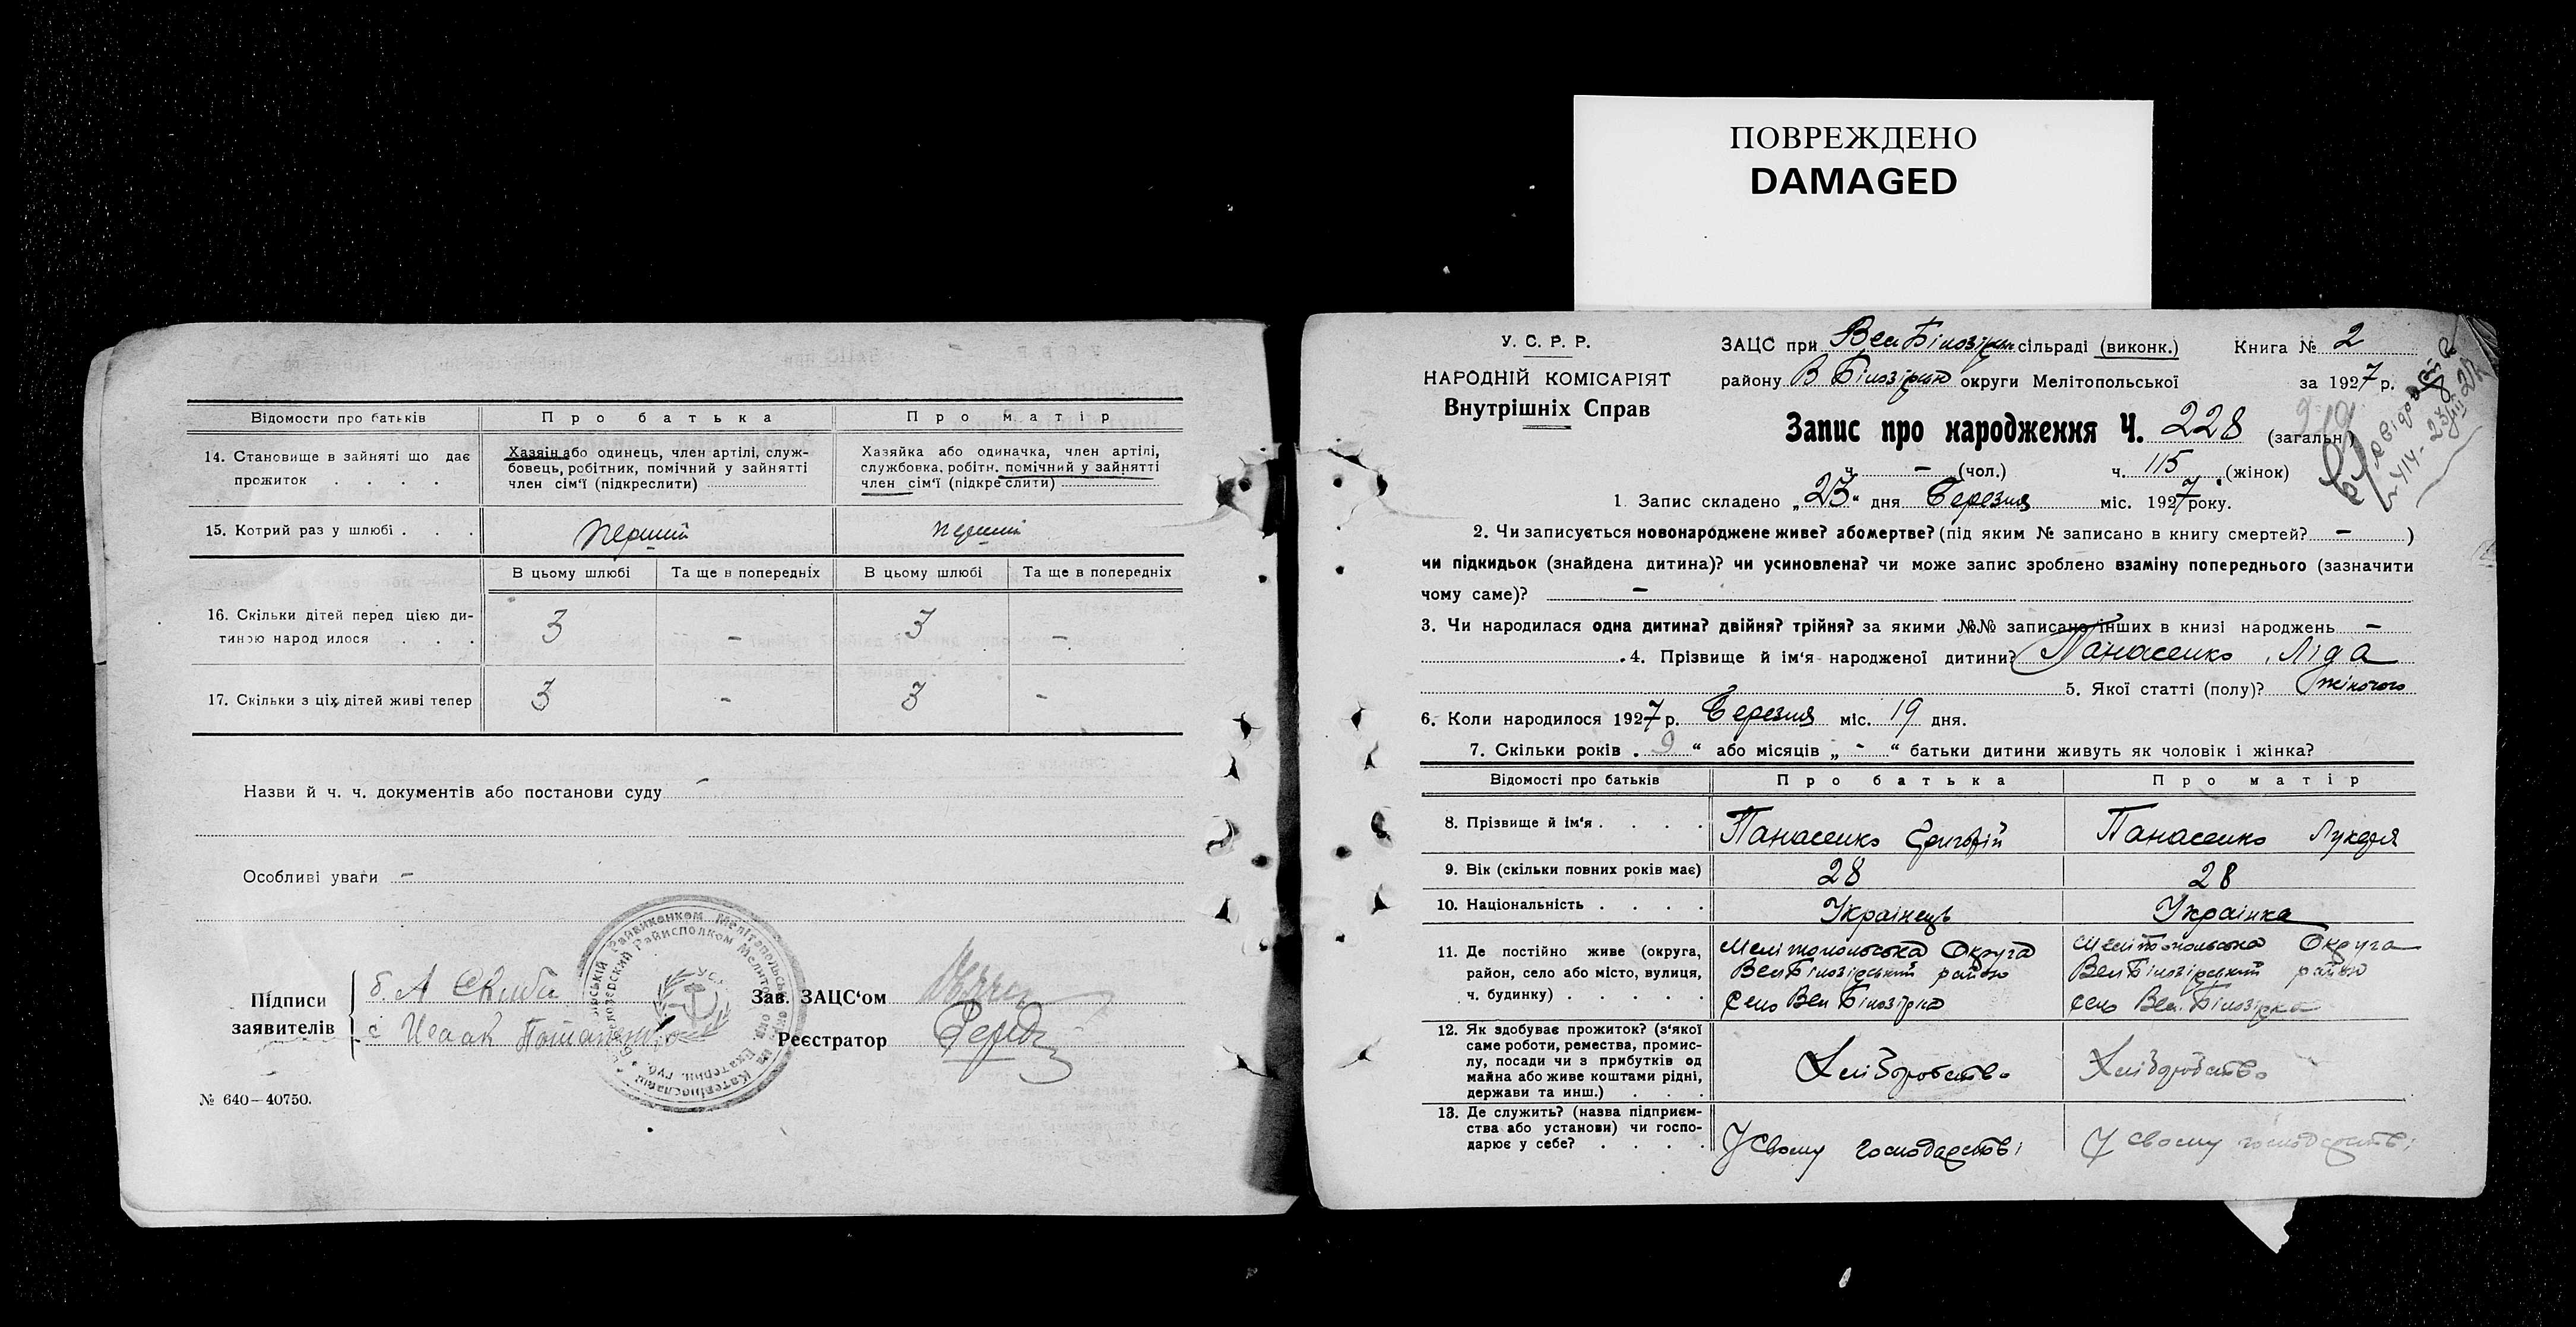 ПОВРЕЖДЕНО
DAMAGED
Відомости про батьків
Про батька
Про матір
14. Становище в зайняті що дає прожиток . . . .
Хазяін або одинець, член артілі, служ-
бовець, робітник, помічний у зайнятті
член сім'ї (підкреслити)
Хазяйка або одиначка, член артілі,
службовка, робітн. помічний у зайнятті
член сім'ї (підкреслити)
15. Котрий раз у шлюбі . . .
перший
перший
В цьому шлюбі
Та ще в попередніх
В цьому шлюбі
Та ще в попередніх
16. Скільки дітей перед цією ди-
тиною народилося . . .
3
-
3
-
17. Скільки з ціх дітей живі тепер
3
-
3
-
Назви й ч. ч. документів або постанови суду -
Особливі уваги -
Підписи
заявителів
б. А Скиба
с Исаак
Зав. ЗАЦС'ом
Реєстратор
№ 640—40750.
У. С. Р. Р.
НАРОДНІЙ КОМІСАРІЯТ
Внутрішніх Справ
ЗАЦС при Вел Білозірск сільраді (виконк.) Книга № 2
району В Білозірка округи Мелітопольської за 1927 р.
Запис про народження Ч. 228 (загальн)
ч. - (чол.) ч. 115 (жінок)
1. Запис складено „23“ дня Березня міс. 1927 року.
2. Чи записується новонароджене живе? абомертве? (під яким № записано в книгу смертей? - )
чи підкидьок (знайдена дитина)? чи усиновлена? чи може запис зроблено взаміну попереднього (зазначити
чому саме)? -
3. Чи народилася одна дитина? двійня? трійня? за якими №№ записано інших в книзі народжень -
4. Прізвище й ім'я народженої дитини? Панасенко Ліда
5. Якої статті (полу)? жіночого
6. Коли народилося 1927 р. Березня міс. 19 дня.
7. Скільки років „9“ або місяців „-“ батьки дитини живуть як чоловік і жінка?
Відомості про батьків
Про батька
Про матір
8. Прізвище й ім'я . . . .
Панасенко Григорій
Панасенко Лукеря
9. Вік (скільки повних років має)
28
28
10. Національність . . . .
Українець
Українка
11. Де постійно живе (округа,
район, село або місто, вулиця,
ч. будинку) . . . . .
Мелітопольська Округа
Вел Білозірський район
село Вел Білозірка
Мелітопольська Округа
Вел Білозірський район
село Вел. Білозірка
12. Як здобуває прожиток? (з'якої
саме роботи, ремества, промис-
лу, посади чи з прибутків од
майна або живе коштами рідні,
держави та инш.) . . .
Хліборобство
Хліборобство
13. Де служить? (назва підприєм-
ства або установи) чи госпо-
дарює у себе? . . . .
У свому господарстві
У свому господарстві